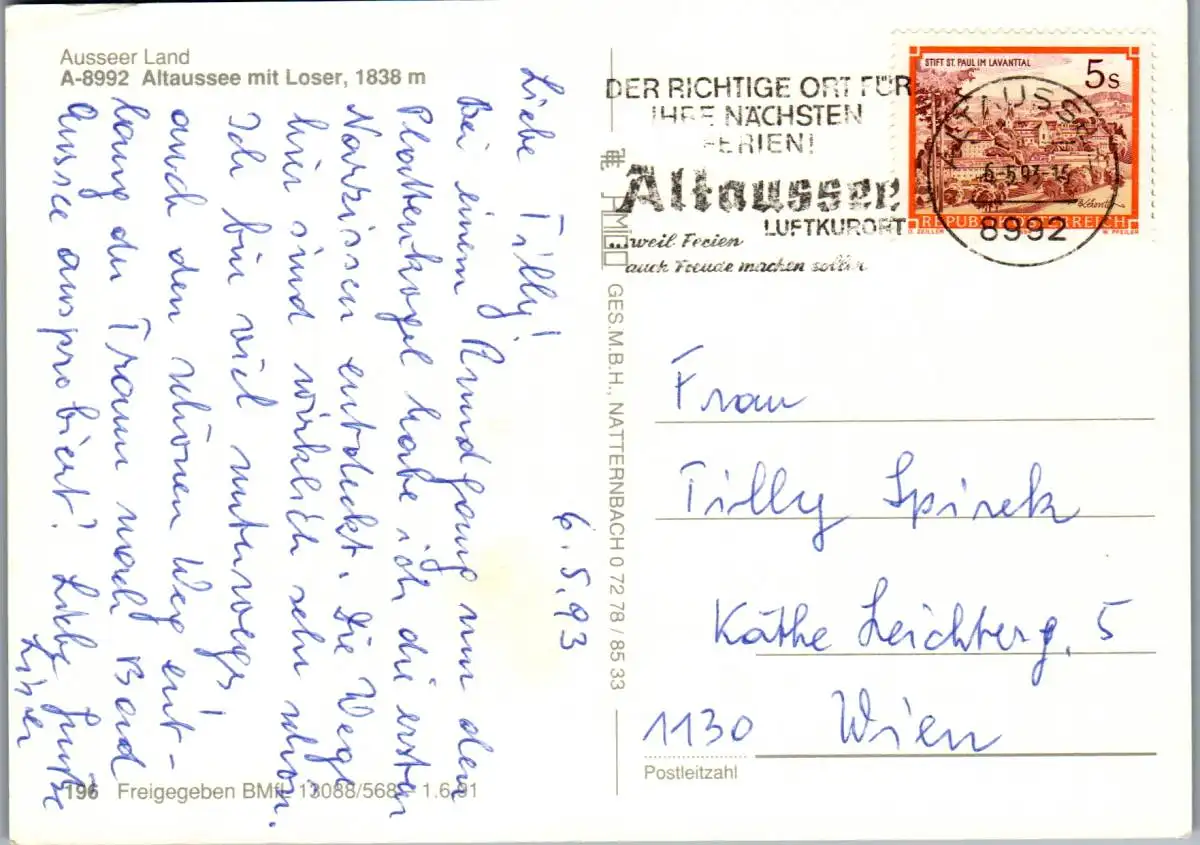 Ausseer Land
A-8992 Altaussee mit Loser, 1838 m
6.5.93
Liebe Tilly!
Bei einem Rundgang um den
Plattenkogel habe ich die ersten
Narzissen entdeckt. Die Wege
hier sind wirklich sehr schön.
Ich bin viel unterwegs!
auch den schönen Weg ent-
lang der Traun nach Bad
Aussee ausprobiert! Liebe Grüße
DER RICHTIGE ORT FÜR
IHRE NÄCHSTEN
FERIEN!
Altaussee
LUFTKURORT
...weil Ferien
auch Freude machen sollen
STIFT ST. PAUL IM LAVANTTAL
5s
REPUBLIK ÖSTERREICH
O. ZEILLER
W. PFEILER
ALTAUSSEE
6.-5.93-15
8992
GES.M.B.H., NATTERNBACH 0 72 78 / 85 33
Frau
Tilly Spirek
Käthe Leichterg. 5
1130 Wien
Postleitzahl
196 Freigegeben BMfL 13088/568 1.6.91